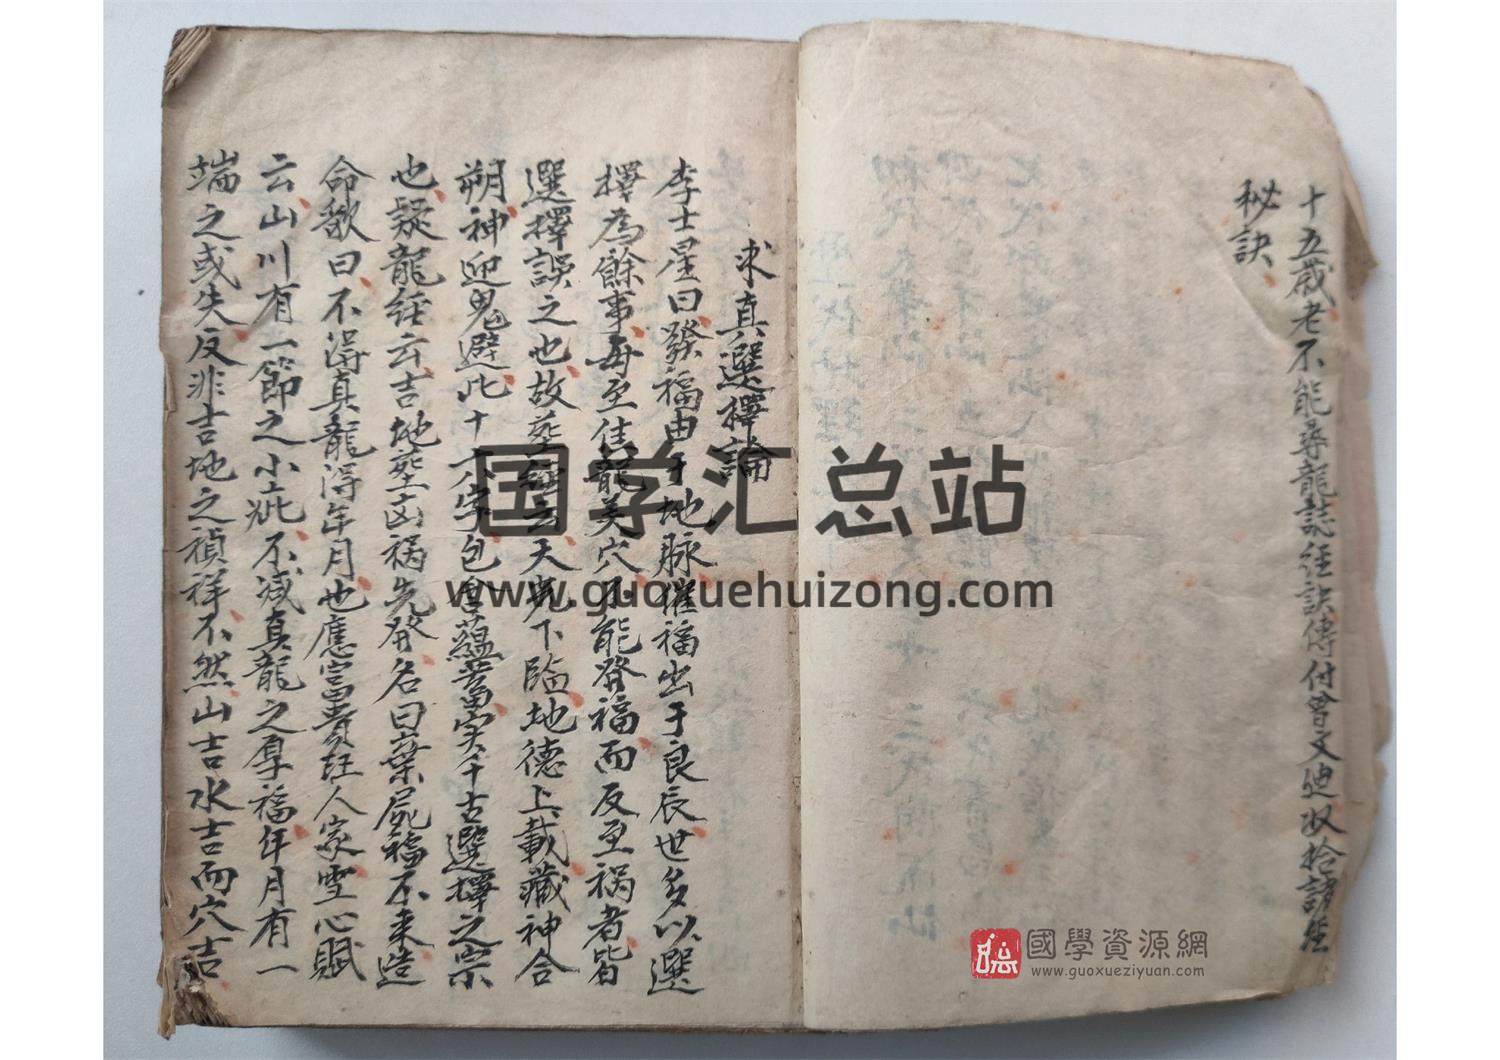 十五歲老不能尋龍誌经訣傳付曾文迪收拾諸經
秘訣
求真選擇論
李士星曰發福由于地脉催福出于良辰世多以選
擇為餘事每至佳龍美穴不能發福而反至祸者皆
選擇誤之也故塟經云天光下臨地德上載藏神合
朔神迎鬼避此十六字包含蘊蓄实千古選擇之宗
也疑龍经云吉地塟凶祸先發名曰棄屍福不来造
命歌曰不得真龍得年月也應富貴旺人家雪心賦
云山川有一節之小疵不减真龍之厚福年月有一
端之或失反非吉地之禎祥不然山吉水吉而穴吉
国学汇总站
www.guoxuehuizong.com
國學資源網
www.guoxueziyuan.com